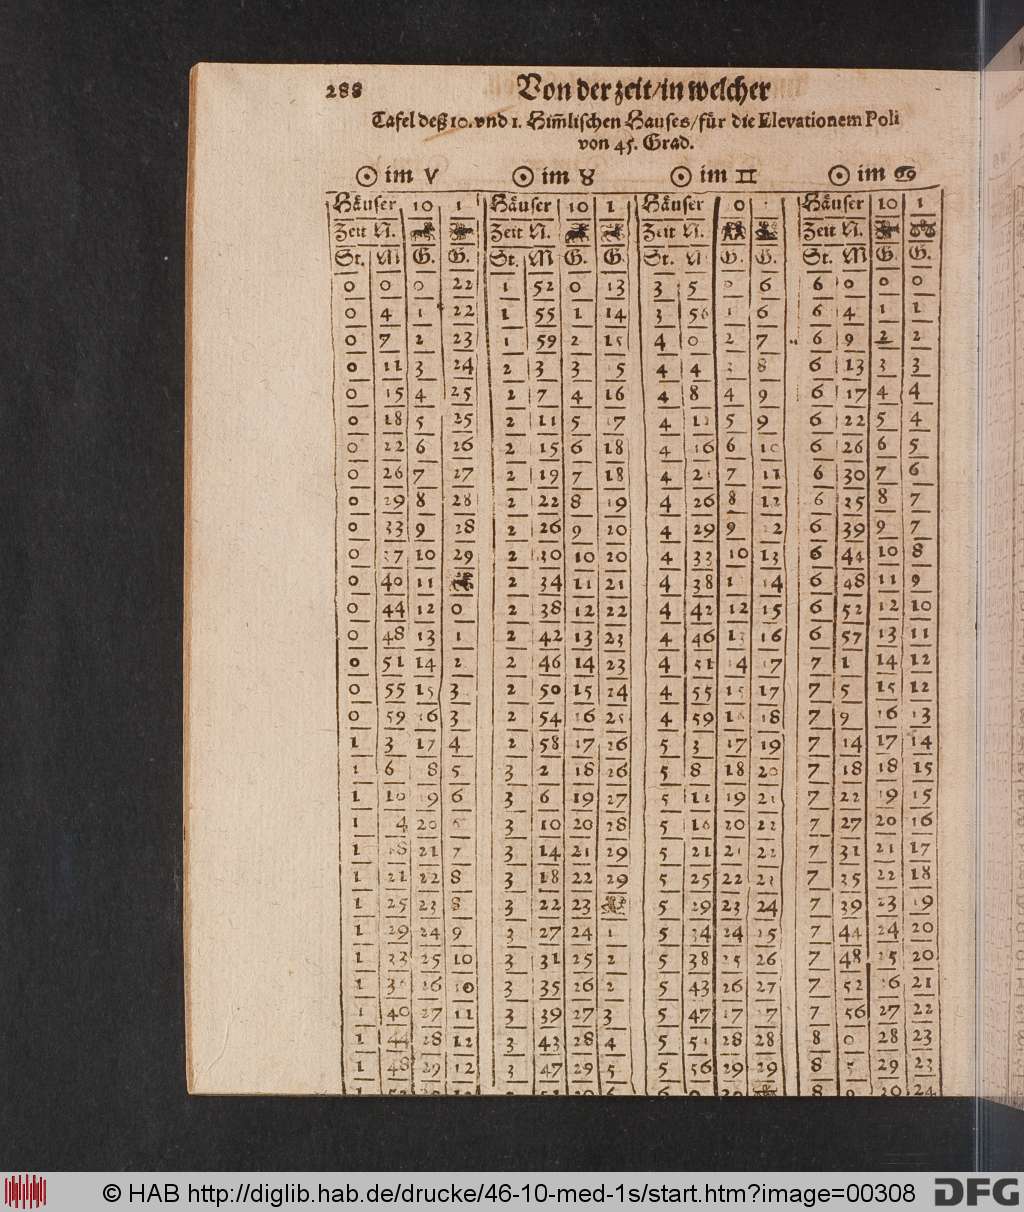 288 Von der zeit/in welcher
Tafel deß 10. vnd 1. Him̃lischen Hauses/für die Elevationem Poli
von 45. Grad.
☉ im ♈ ☉ im ♉ ☉ im ♊ ☉ im ♋
Häuser 10 1 Häuser 10 1 Häuser 0 Häuser 10 1
Zeit N. Zeit N. Zeit N. Zeit N.
St. M G. G. St. M G. G. St. G. G. St. M G. G.
0 0 0 22 1 52 0 13 3 5 0 6 6 0 0 0
0 4 1 22 1 55 1 14 3 56 1 6 6 4 1 1
0 7 2 23 1 59 2 15 4 0 2 7 6 9 2 2
0 11 3 24 2 3 3 5 4 4 3 8 6 13 3 3
0 15 4 25 2 7 4 16 4 8 4 9 6 17 4 4
0 18 5 25 2 11 5 17 4 12 5 9 6 22 5 4
0 22 6 26 2 15 6 18 4 16 6 10 6 26 6 5
0 26 7 27 2 19 7 18 4 2 7 11 6 30 7 6
0 29 8 28 2 22 8 19 4 26 8 12 6 35 8 7
0 33 9 28 2 26 9 20 4 29 9 12 6 39 9 7
0 37 10 29 2 30 10 20 4 33 10 13 6 44 10 8
0 40 11 2 34 11 21 4 38 1 14 6 48 11 9
0 44 12 0 2 38 12 22 4 42 12 15 6 52 12 10
0 48 13 1 2 42 13 23 4 46 13 16 6 57 13 11
0 51 14 2 2 46 14 23 4 51 14 17 7 1 14 12
0 55 15 3 2 50 15 24 4 55 15 17 7 5 15 12
0 59 16 3 2 54 16 25 4 59 16 18 7 9 16 13
1 3 17 4 2 58 17 26 5 3 17 19 7 14 17 14
1 6 8 5 3 2 18 26 5 8 18 20 7 18 18 15
1 10 19 6 3 6 19 27 5 12 19 21 7 22 19 15
1 4 20 3 10 20 28 5 16 20 22 7 27 20 16
1 18 21 7 3 14 21 29 5 21 21 22 7 31 21 17
1 21 22 8 3 18 22 29 5 25 22 23 7 35 22 18
1 25 23 8 3 22 23 5 29 23 24 7 39 23 19
1 29 24 9 3 27 24 1 5 34 24 25 7 44 24 20
1 33 25 10 3 31 25 2 5 38 25 26 7 48 25 20
1 3 26 10 3 35 26 2 5 43 26 27 7 52 26 21
1 40 27 11 3 39 27 3 5 47 27 27 7 56 27 22
1 44 28 12 3 43 28 4 5 51 28 28 8 0 28 23
1 48 29 12 3 47 29 5 5 56 29 29 8 5 29 23
© HAB http://diglib.hab.de/drucke/46-10-med-1s/start.htm?image=00308 DFG